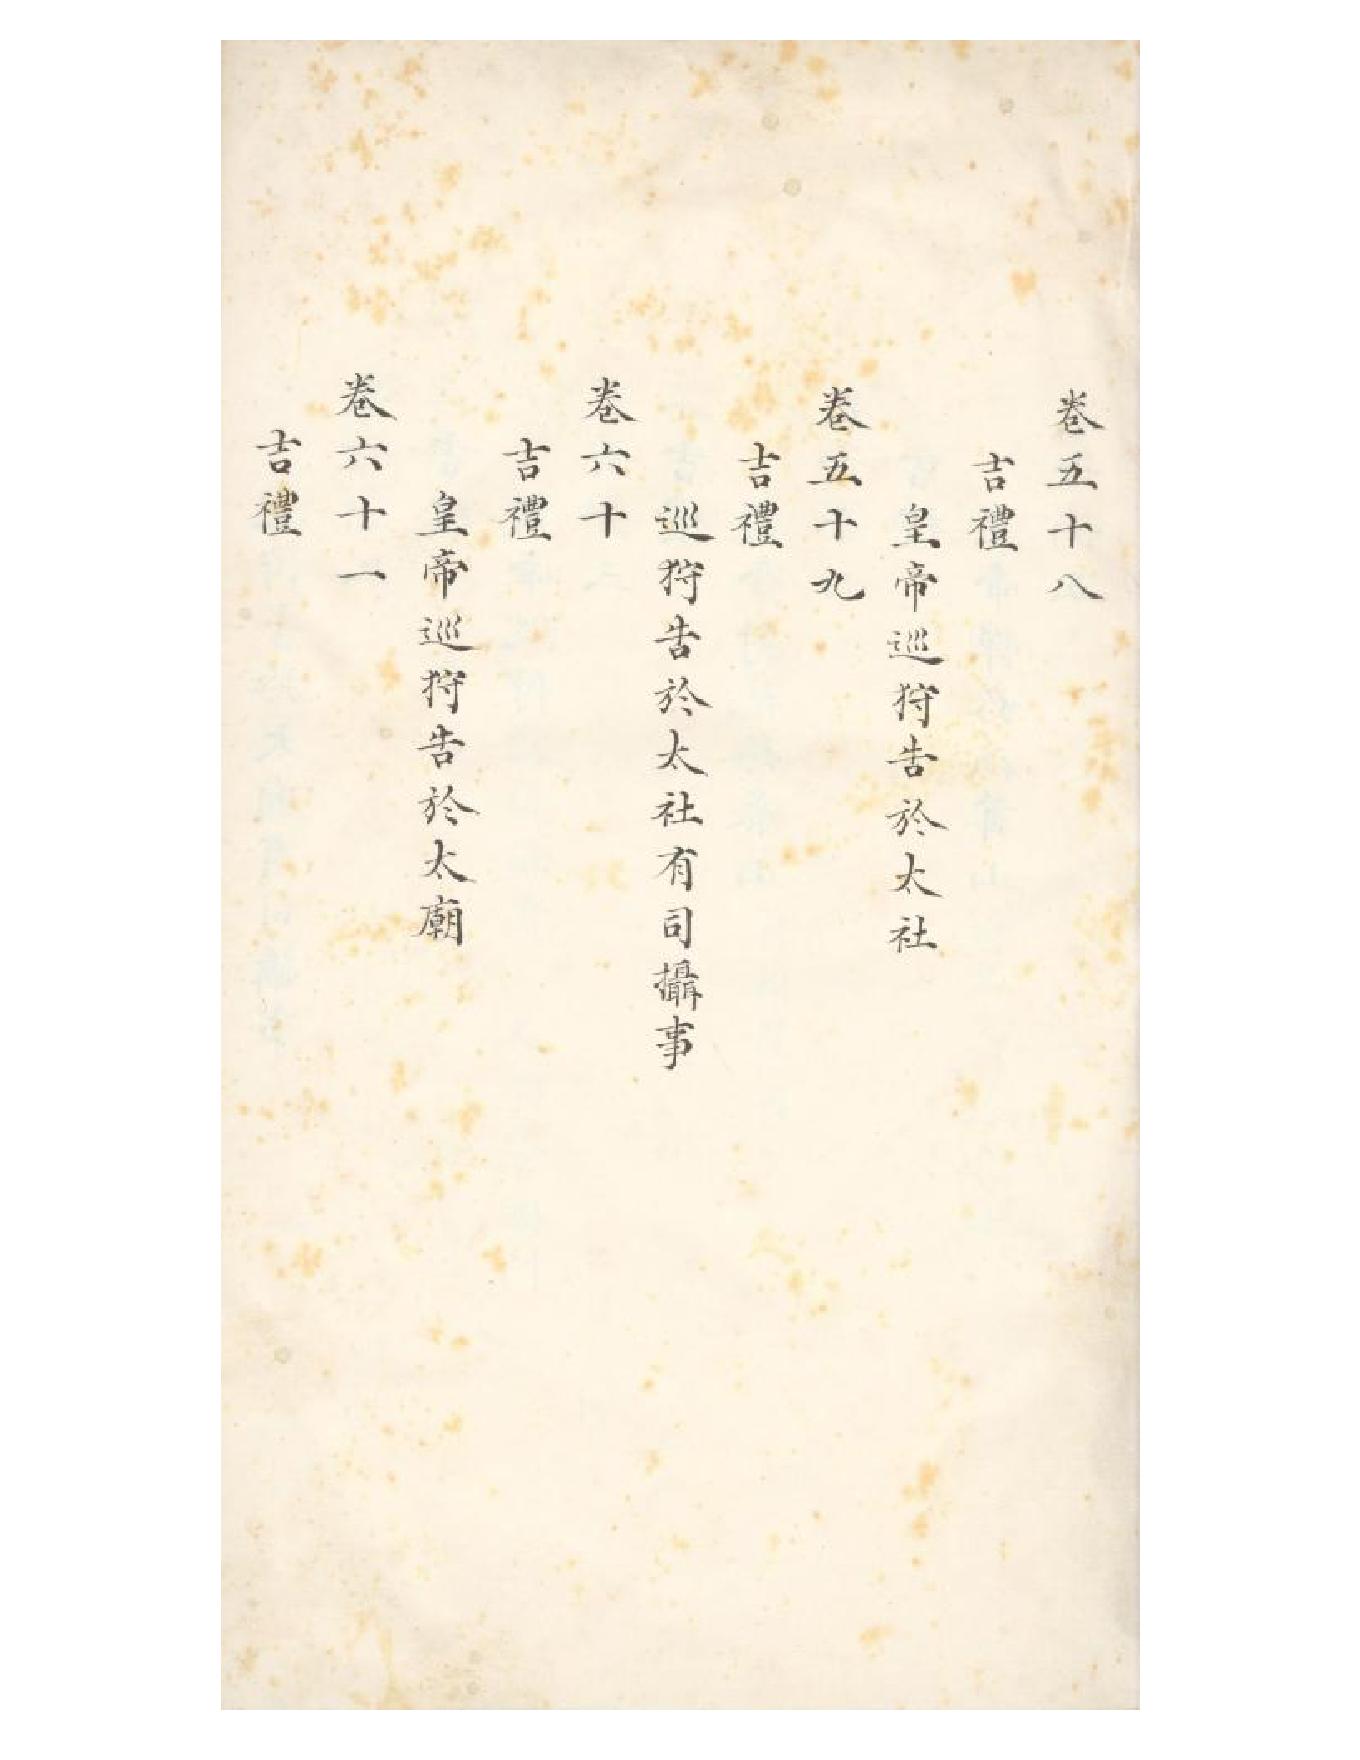 卷五十八
吉禮
皇帝巡狩告於太社
卷五十九
吉禮
巡狩告於太社有司攝事
卷六十
吉禮
皇帝巡狩告於太廟
卷六十一
吉禮